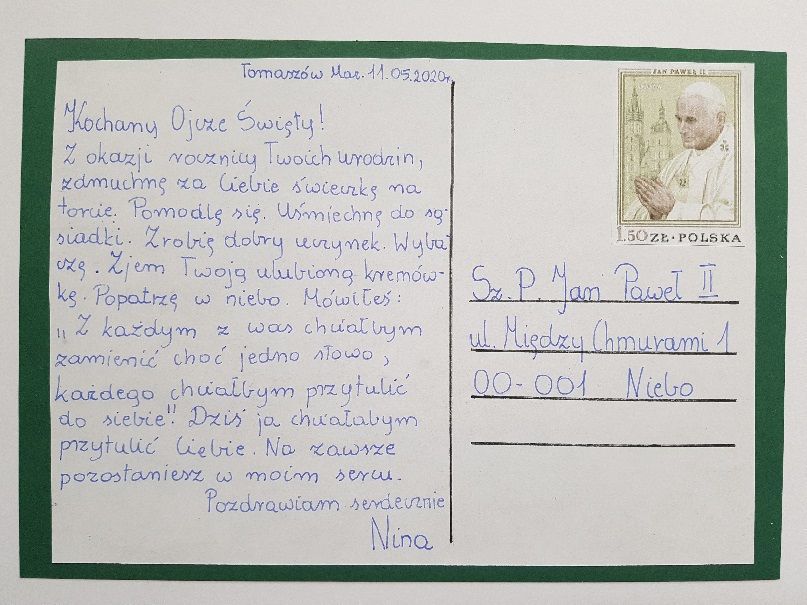 Tomaszów Maz. 11.05.2020r.
Kochany Ojcze Święty!
Z okazji rocznicy Twoich urodzin,
zdmuchnę za Ciebie świeczkę na
torcie. Pomodlę się. Uśmiechnę do są-
siadki. Zrobię dobry uczynek. Wyba-
czę. Zjem Twoją ulubioną kremów-
kę. Popatrzę w niebo. Mówiłeś:
"Z każdym z was chciałbym
zamienić choć jedno słowo,
każdego chciałbym przytulić
do siebie". Dziś ja chciałabym
przytulić Ciebie. Na zawsze
pozostaniesz w moim sercu.
Pozdrawiam serdecznie
Nina
JAN PAWEŁ II
1.50 ZŁ · POLSKA
Sz. P. Jan Paweł II
ul. Między Chmurami 1
00-001 Niebo